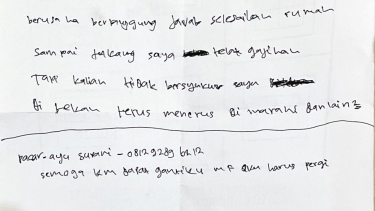 berusaha bertanggung jawab selesaikan rumah
sampai sekarang saya telat gajihan
Tapi kalian tidak bersyukur saya
Di tekan terus menerus Di marahi dan lain2
pacar - ayu suryani - 0812 9289 6212
semoga km dapat gantiku mf aku harus pergi